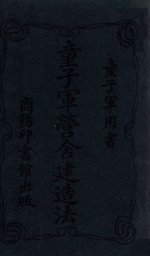 童子軍用書
童子軍營舍建造法
商務印書館出版